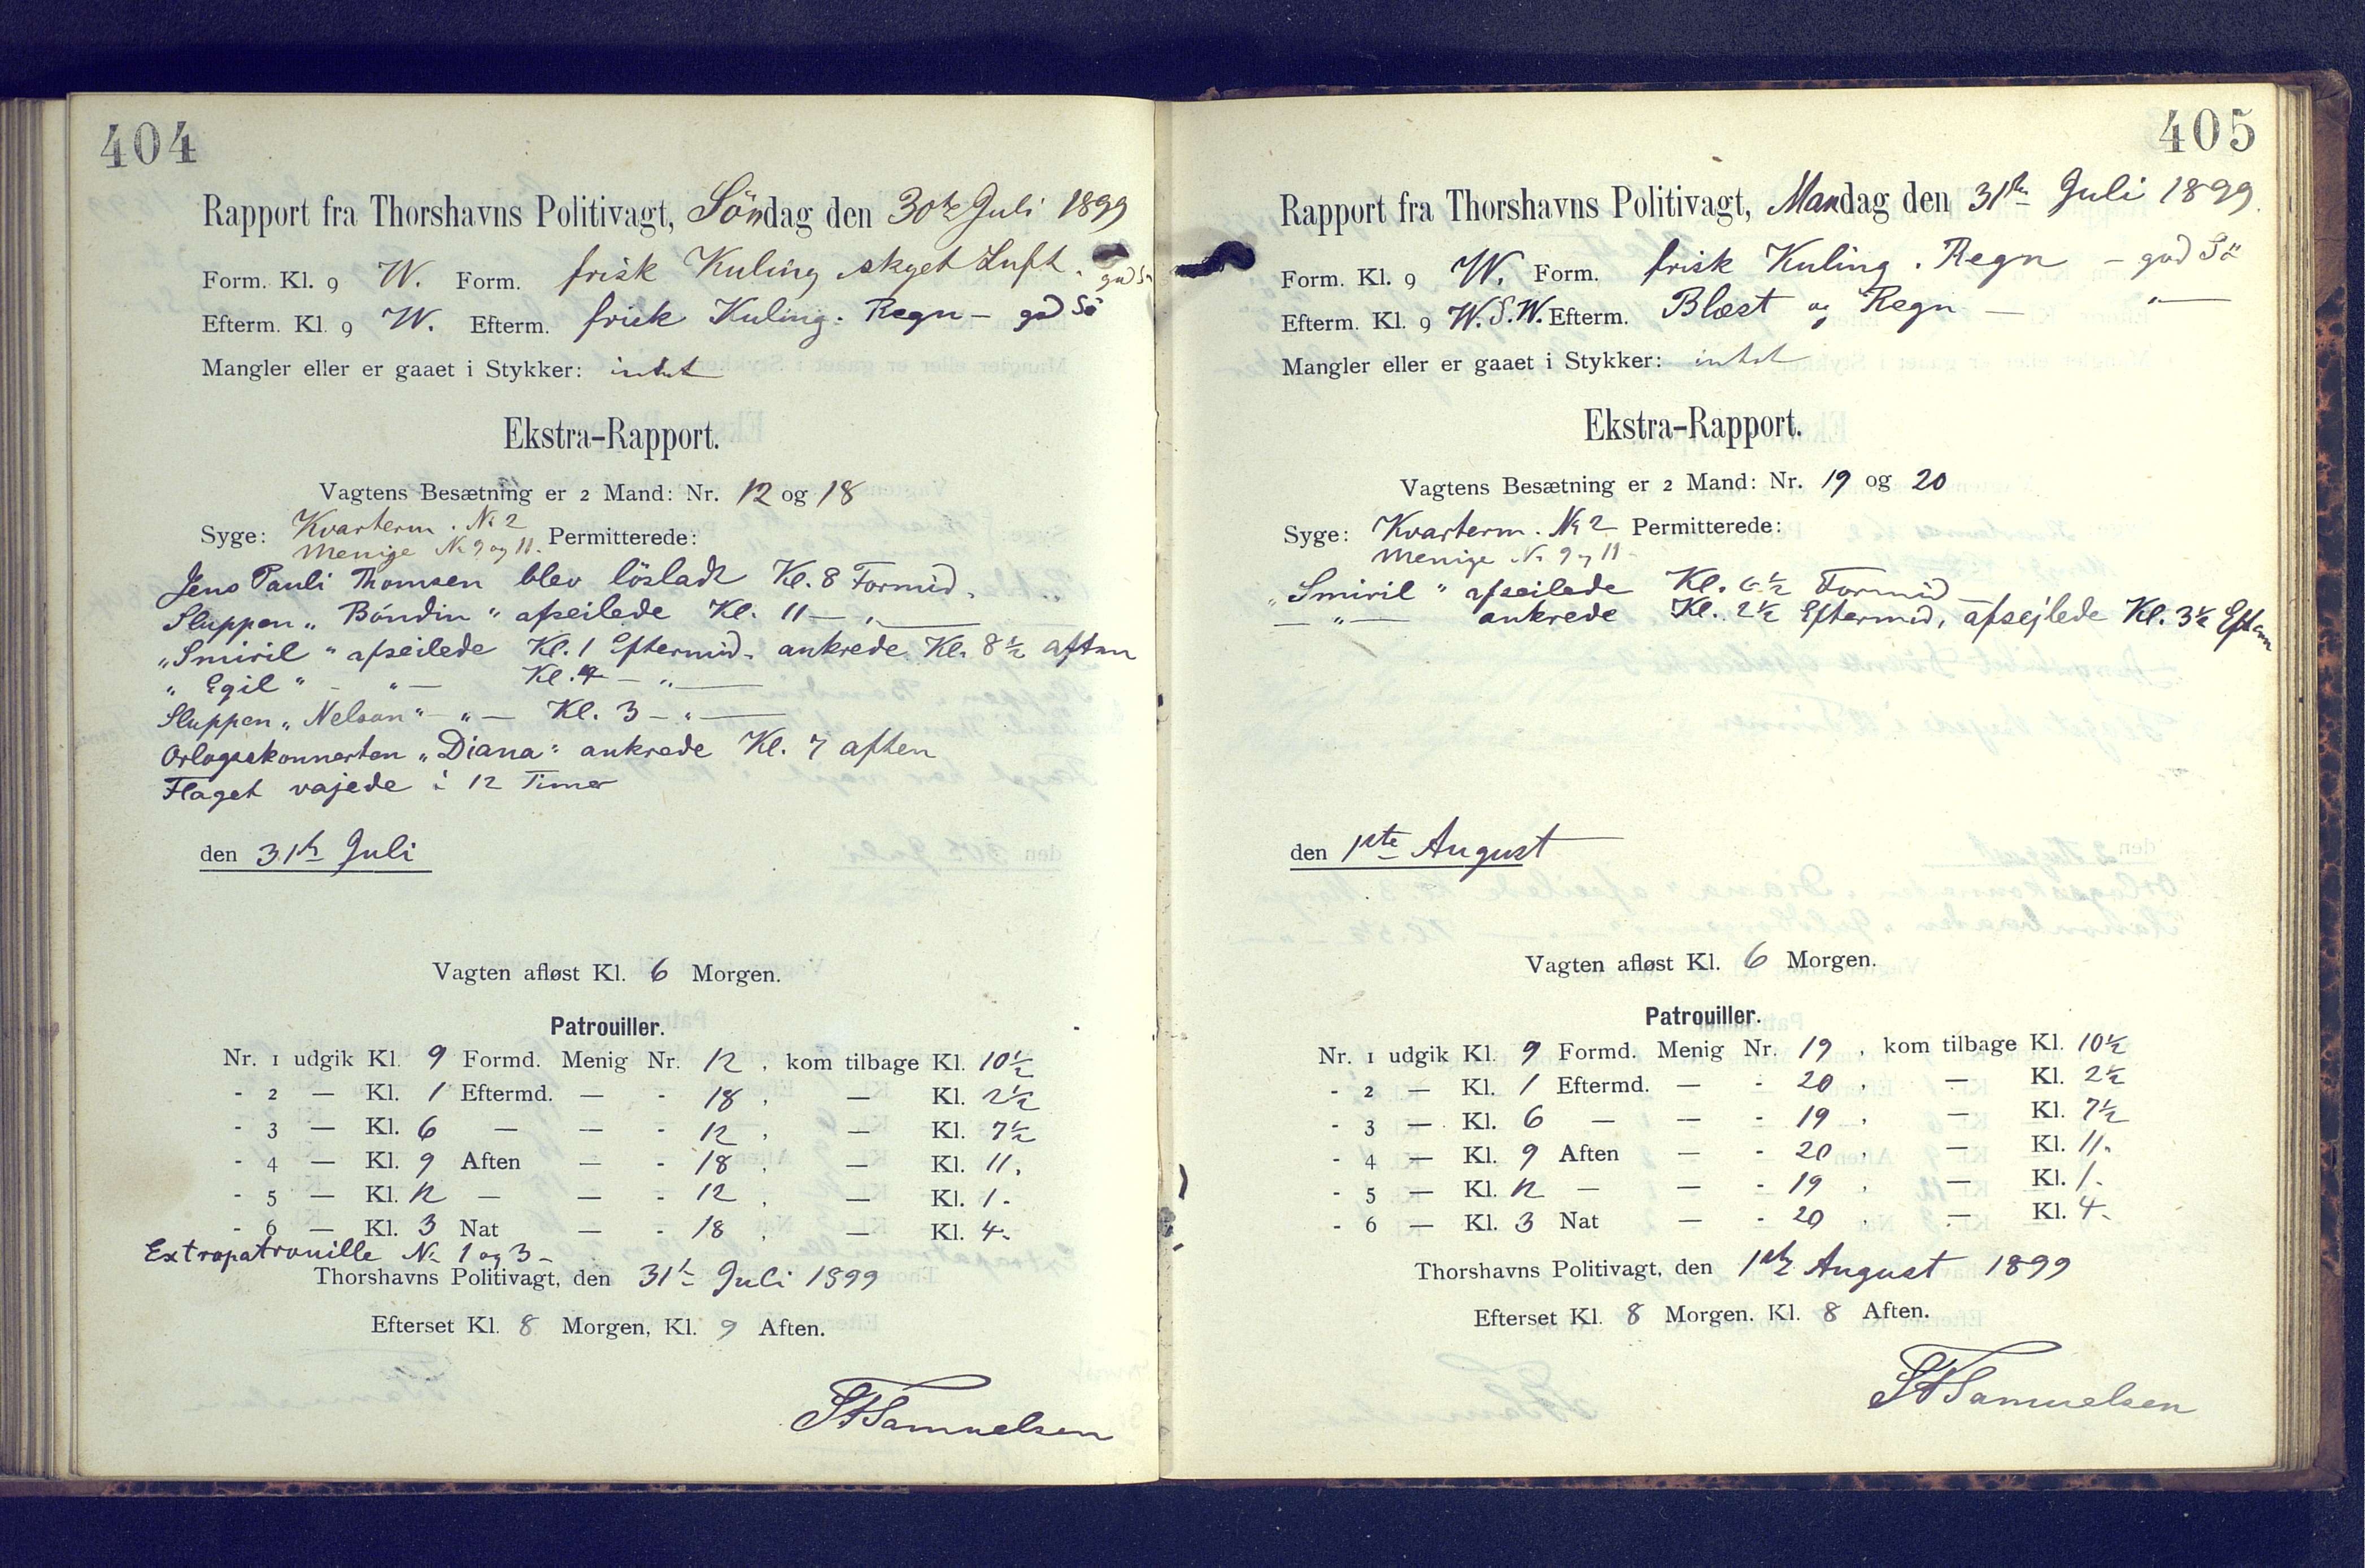 404
Rapport fra Thorshavns Politivagt, Söndag den 30te Juli 1899
Form. Kl. 9 W. Form. frisk Kuling skyet Luft. god Sö
Efterm. Kl. 9 W. Efterm. frisk Kuling. Regn — god Sö
Mangler eller er gaaet i Stykker: intet
Ekstra-Rapport.
Vagtens Besætning er 2 Mand: Nr. 12 og 18
Syge: Kvarterm. No 2 Permitterede:
Menige No 9 og 11.
Jens Pauli Thomsen blev lösladt Kl. 8 Formid.
Sluppen „Böndin" afseilede Kl. 11 — " —
„Smiril" afseilede Kl. 1 Eftermid. ankrede Kl. 8½ aften
„Egil" — " — Kl. 4 — " —
Sluppen „Nelson" — " — Kl. 3 — " —
Orlogsskonnerten „Diana" ankrede Kl. 7 aften
Flaget vajede i 12 Timer
den 31te Juli
Vagten afløst Kl. 6 Morgen.
Patrouiller.
Nr. 1 udgik Kl. 9 Formd. Menig Nr. 12, kom tilbage Kl. 10½
- 2 — Kl. 1 Eftermd. — - 18, — Kl. 2½
- 3 — Kl. 6 — — - 12, — Kl. 7½
- 4 — Kl. 9 Aften — - 18, — Kl. 11.
- 5 — Kl. 12 — — - 12, — Kl. 1.
- 6 — Kl. 3 Nat — - 18, — Kl. 4.
Extrapatrouille No 1 og 3 —
Thorshavns Politivagt, den 31te Juli 1899
Efterset Kl. 8 Morgen, Kl. 9 Aften.
Samuelsen
405
Rapport fra Thorshavns Politivagt, Mandag den 31te Juli 1899.
Form. Kl. 9 W. Form. frisk Kuling. Regn — god Sö
Efterm. Kl. 9 W.S.W. Efterm. Blæst og Regn — " —
Mangler eller er gaaet i Stykker: intet
Ekstra-Rapport.
Vagtens Besætning er 2 Mand: Nr. 19 og 20
Syge: Kvarterm. No 2 Permitterede:
Menige No 9 og 11
„Smiril" afseilede Kl. 6½ Formid
— " — ankrede Kl. 2½ Eftermid, afsejlede Kl. 3½ Efterm
den 1ste August
Vagten afløst Kl. 6 Morgen.
Patrouiller.
Nr. 1 udgik Kl. 9 Formd. Menig Nr. 19, kom tilbage Kl. 10½
- 2 — Kl. 1 Eftermd. — - 20, — Kl. 2½
- 3 — Kl. 6 — — - 19, — Kl. 7½
- 4 — Kl. 9 Aften — - 20, — Kl. 11.
- 5 — Kl. 12 — — - 19, — Kl. 1.
- 6 — Kl. 3 Nat — - 20, — Kl. 4.
Thorshavns Politivagt, den 1ste August 1899
Efterset Kl. 8 Morgen, Kl. 8 Aften.
Samuelsen